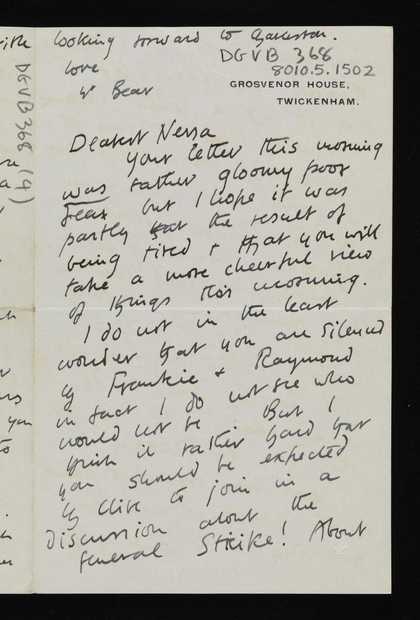 looking forward to Garleston.
love
yr Bear
DGVB 368
8010.5.1502
GROSVENOR HOUSE,
TWICKENHAM.
DGVB 368 (9)
Dearest Nessa
Your letter this morning
was rather gloomy poor
dear but I hope it was
partly the result of
being tired & that you will
take a more cheerful view
of things this morning.
I do not in the least
wonder that you are silenced
by Frankie & Raymond
in fact I do not see who
would not be. But I
think it rather hard that
you should be expected
by Clive to join in a
Discussion about the
general Strike! About
you
to